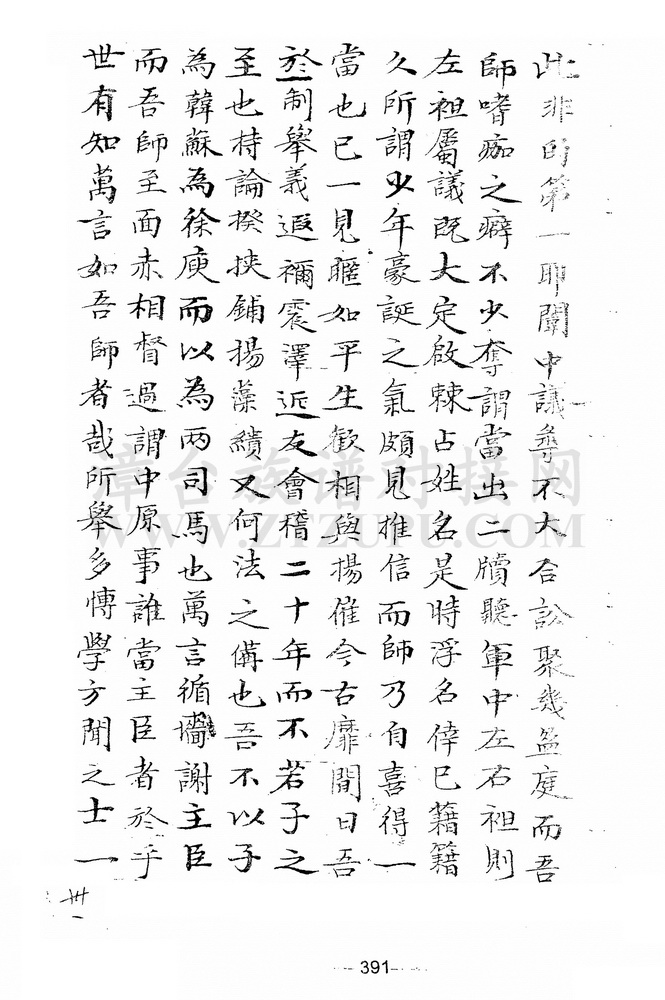 此非的第一耶聞中議尋不大合訟聚幾盈庭而吾
師嗜痂之癖不少奪謂當出二牘聽軍中左右袒則
左袒屬議既大定啟棘占姓名是時浮名倖已藉籍
久所謂少年豪誕之氣頗見推信而師乃自喜得一
當也已一見驩如平生歡相與揚傕今古靡間日吾
於制舉義遐禰震澤近友會稽二十年而不若子之
至也持論揆挾鋪揚藻繢又何法之備也吾不以子
為韓蘇為徐庾而以為两司馬也萬言循墻謝主臣
而吾師至面赤相督過謂中原事誰當主臣者於乎
世有知萬言如吾師者哉所舉多慱學方聞之士一
卅一
391
章台族谱对接网
WWW.ZTZUPU.COM